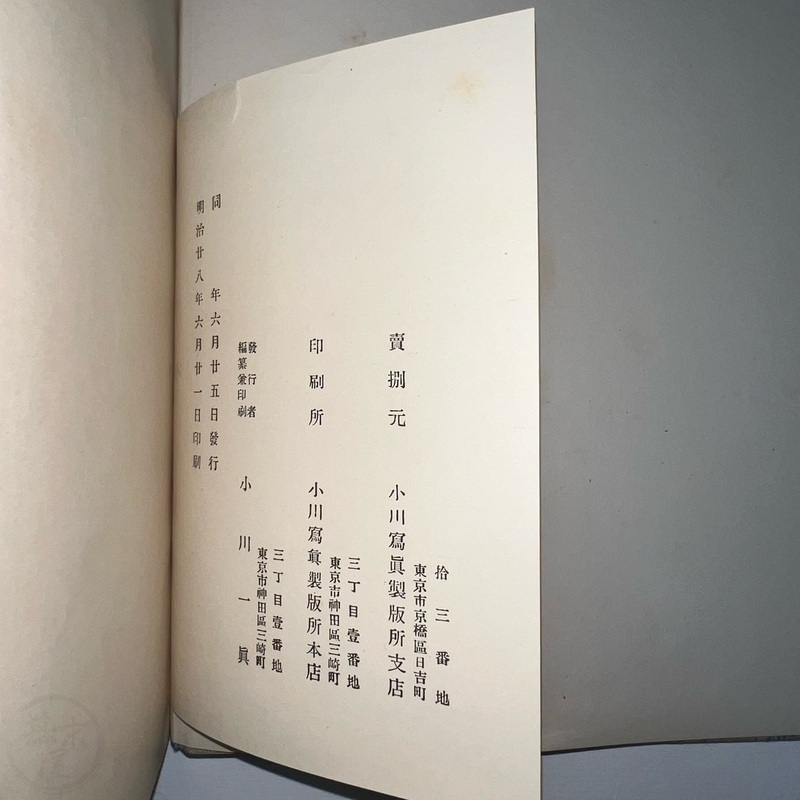 明治廿八年六月廿一日印刷
同年六月廿五日發行
編纂兼印刷
發行者
小川一眞
東京市神田區三崎町
三丁目壹番地
印刷所 小川寫眞製版所本店
東京市神田區三崎町
三丁目壹番地
賣捌元 小川寫眞製版所支店
東京市京橋區日吉町
拾三番地